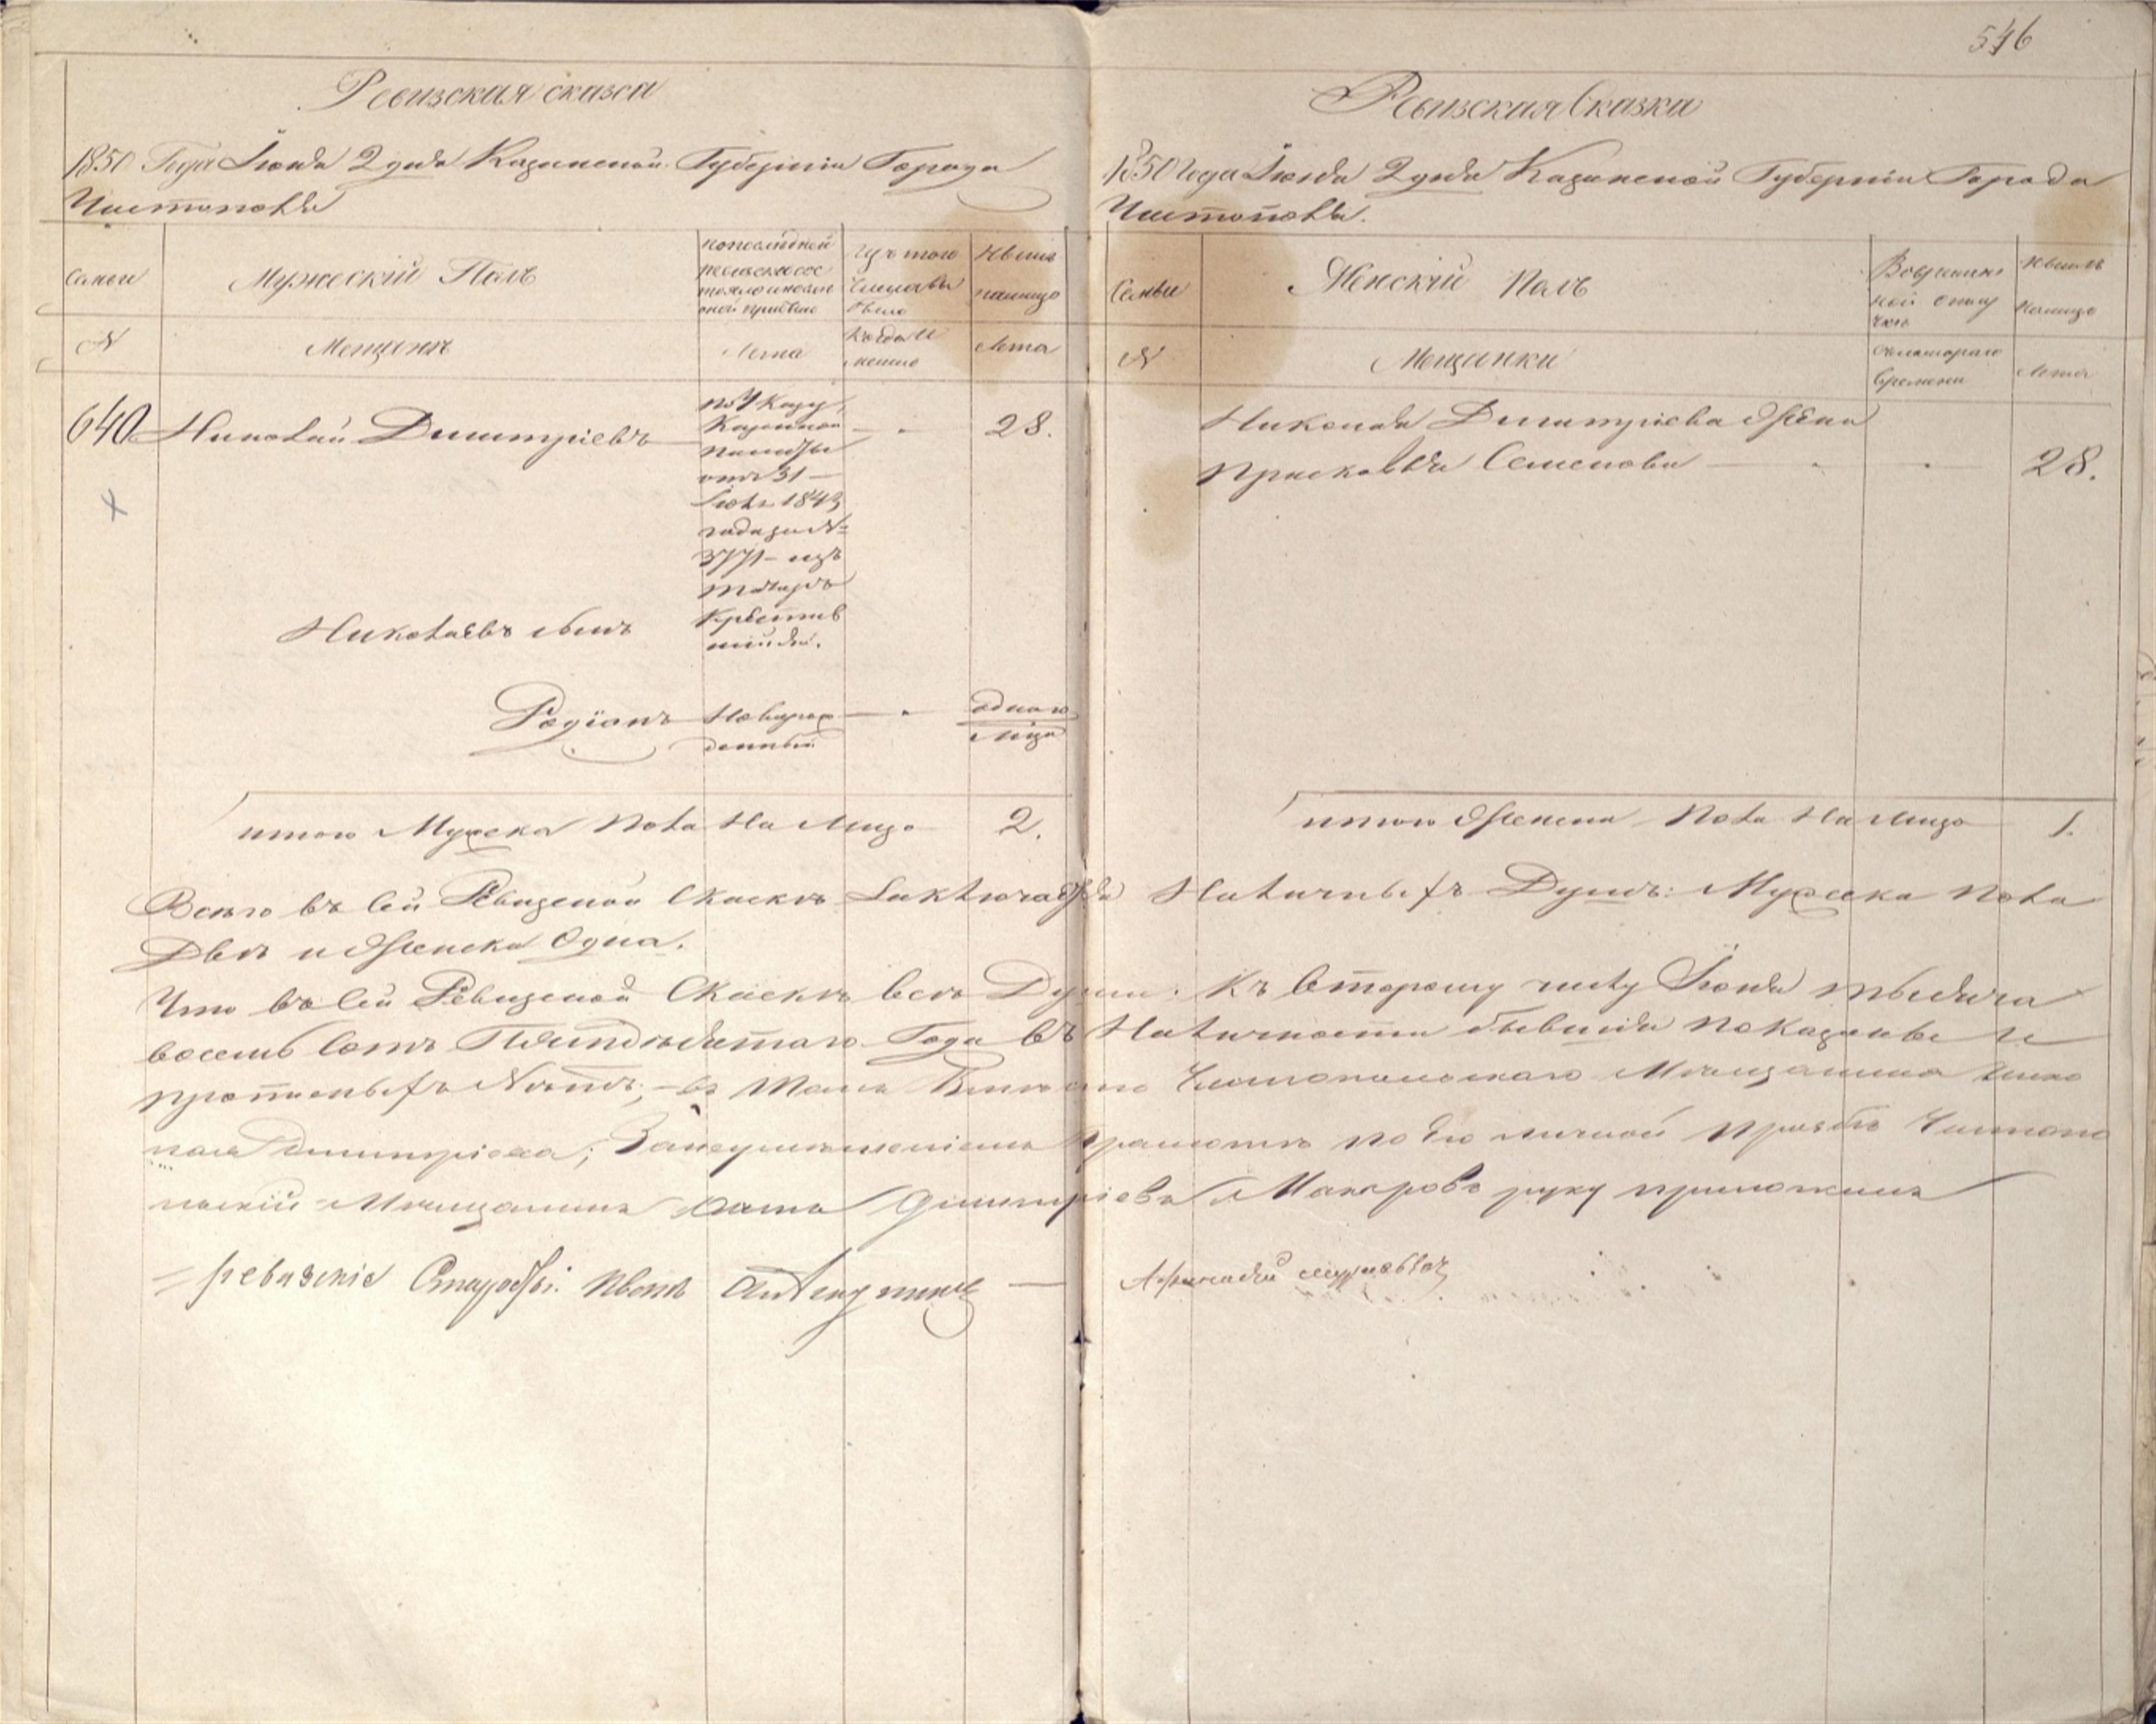 546
Ревизская сказка
1850 Года Июня 2 дня Казанской Губернии Города
Чистополя
Семьи
Мужеский Полъ
По последней
ревизии сос
Изъ того
числа вы
было
Ныне
на лицо
N
Мещане
Лета
Когда и
менно
Лета
640 Николай Димитріевъ
по Указу
Казенной
палаты
отъ 31
Іюля 1843
года за №
3771 изъ
татаръ
28.
Николаевъ сынъ
Родіонъ
Новорож
денный
одного
итого Мужеска пола на лицо 2.
Ревизская Сказка
1850 года Июня 2 дня Казанской Губерніи Города
Чистополя.
Семьи
Женскій Полъ
Во временной
отлу
чке
Ныне
налицо
N
Мещанки
Съ котораго
времени
Лета
Николая Димитріева жена
Прасковья Семенова 28.
итого Женска пола на лицо 1.
Всего въ сей Ревизской Скаске заключается Наличныхъ Душъ: Мужеска пола
Две и Женска Одна.
Что въ сей Ревизской Скаске все Души къ второму числу Іюня тысяча
восемь сотъ Пятьдесятаго Года въ Наличности бывшія показаны и
прописныхъ Нетъ; въ томъ Чистопольскаго Мещанина Нико
лая Димитріева; За неуменіемъ грамоте по его личной прозьбе Чистопо
льскій Мещанинъ Димитріевъ Макаровъ руку приложилъ
ревизские Старосты: Иванъ